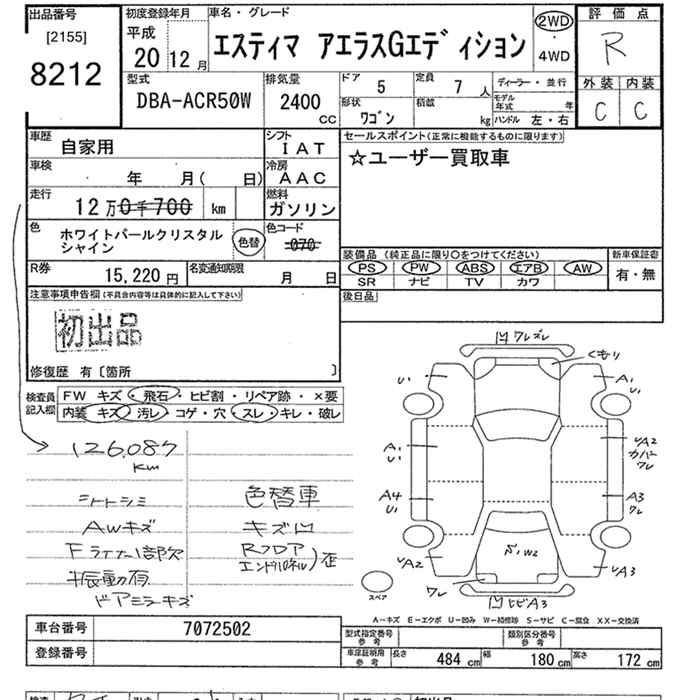 出品番号
[2155]
8212
初度登録年月
平成
20 12 月
車名・グレード
エスティマ アエラスGエディション
2WD
・
4WD
評 価 点
R
型式
DBA-ACR50W
排気量
2400
cc
ドア 5
定員 7 人
ディーラー・並行
モデル年式 年
形状
ワゴン
積載
kg
ハンドル 左・右
外装 内装
C C
車歴
自家用
シフト
IAT
セールスポイント(正常に機能するものに限ります)
☆ユーザー買取車
車検
年 月( 日)
冷房
AAC
走行
12万0千700 km
燃料
ガソリン
色
ホワイトパールクリスタル
シャイン
色替
色コード
070
R券
15,220 円
名変通知期限
月 日
装備品(純正品に限り○をつけてください)
PS PW ABS エアB AW
SR ナビ TV カワ
新車保証書
有・無
後日品
注意事項申告欄(不具合内容等は具体的に記入して下さい)
初出品
修復歴 有〔箇所 〕
検査員
記入欄
FW キズ・飛石・ヒビ割・リペア跡・×要
内装 キズ・汚レ・コゲ・穴・スレ・キレ・破レ
126,087
km
シートシミ
AWキズ
Fライナー1部欠
振動有
ドアミラーキズ
色替車
キズ凹
Rフロア
エンドパネル)歪
ワレズレ
くもり
U1
A1
U1
A1
U1
UA2
カバー
ワレ
A4
U1
A3
ワレ
UA2
UA3
W2
ワレ
ヒビA3
スペア
A-キズ E-エクボ U-凹み W-補修跡 S-サビ C-腐食 XX-交換済
車台番号
7072502
登録番号
型式指定番号
参考
類別区分番号
参考
車庫証明用
参考
長さ 484 cm 幅 180 cm 高さ 172 cm
初出品